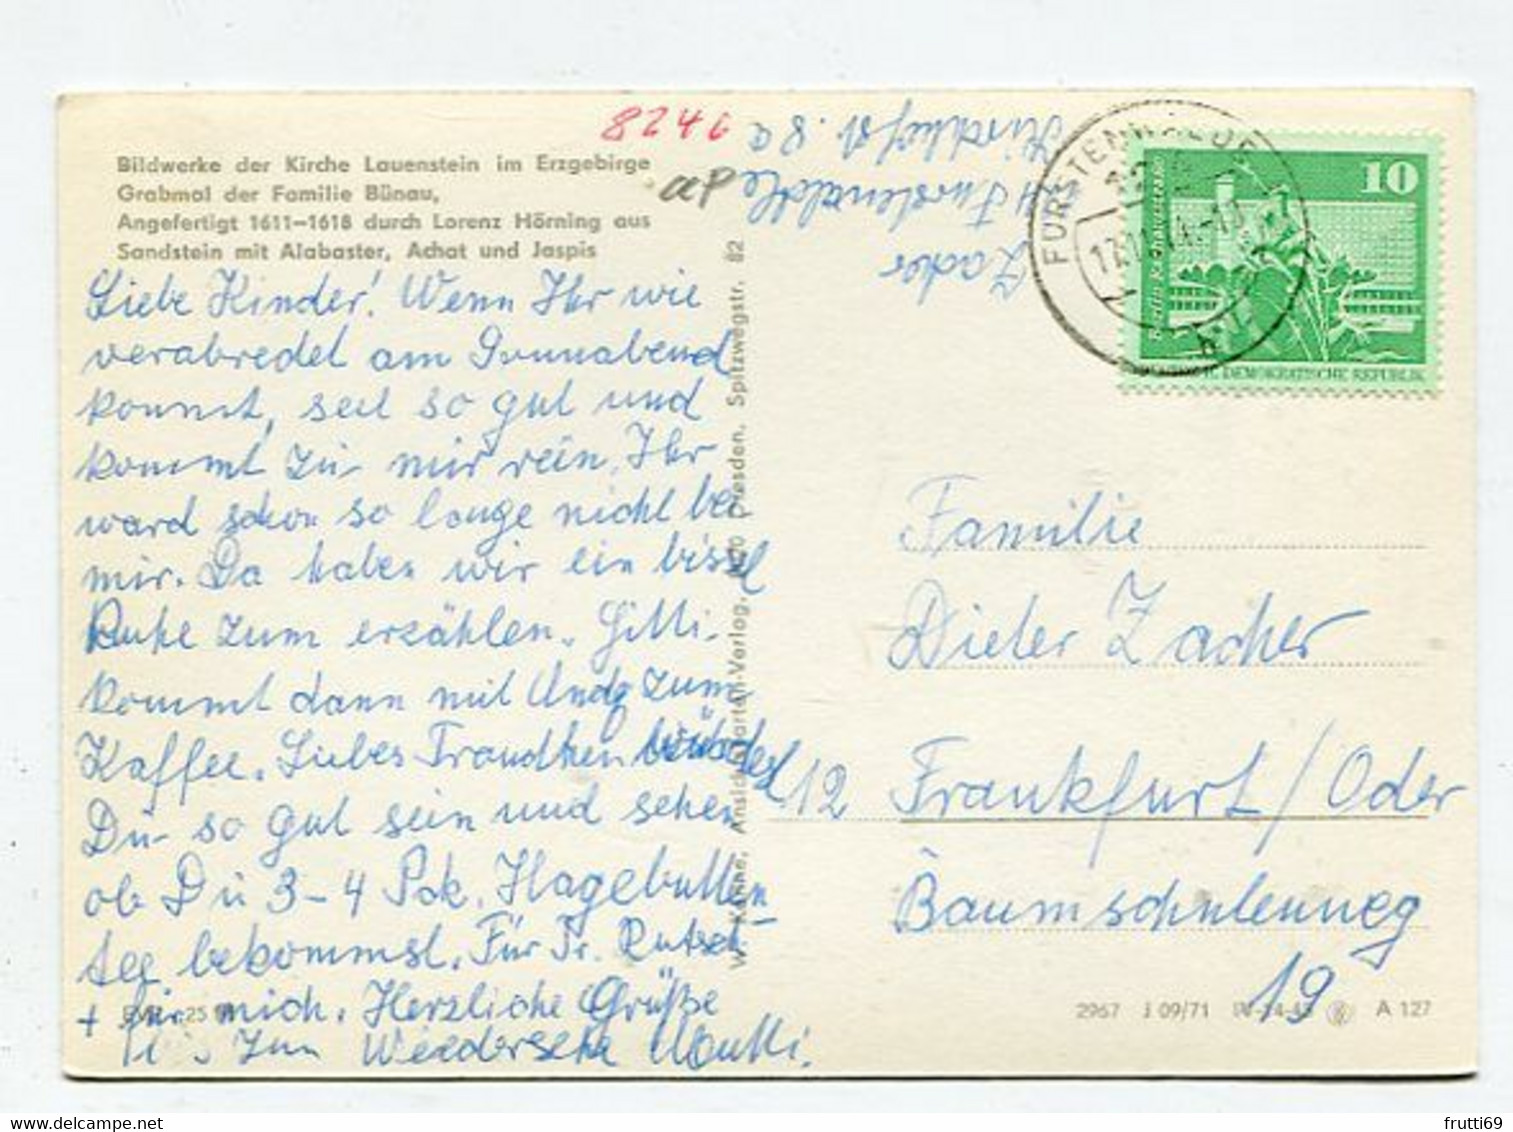 8246
aP
Bildwerke der Kirche Lauenstein im Erzgebirge
Grabmal der Familie Bünau,
Angefertigt 1611–1618 durch Lorenz Hörning aus
Sandstein mit Alabaster, Achat und Jaspis
Liebe Kinder! Wenn Ihr wie
verabredet am Sonnabend
kommt, seit so gut und
kommt zu mir rein. Ihr
ward schon so lange nicht bei
mir. Da haben wir ein bissel
Ruhe zum erzählen. Gitti
kommt dann mit Andy zum
Kaffee. Liebes Traudchen würdest
Du so gut sein und sehen
ob Du 3–4 Pck. Hagebutten-
tee bekommst. Für Fr. Rutsch
+ für mich. Herzliche Grüße
u. zum Wiedersehn Mutti.
Dresden, Spitzwegstr. 82
Zacher
Fürstenwalde
8a
FÜRSTENWALDE
h
10
DEMOKRATISCHE REPUBLIK
Familie
Dieter Zacher
12 Frankfurt/Oder
Baumschulenweg
19
2967 J 09/71 A 127
frutti69